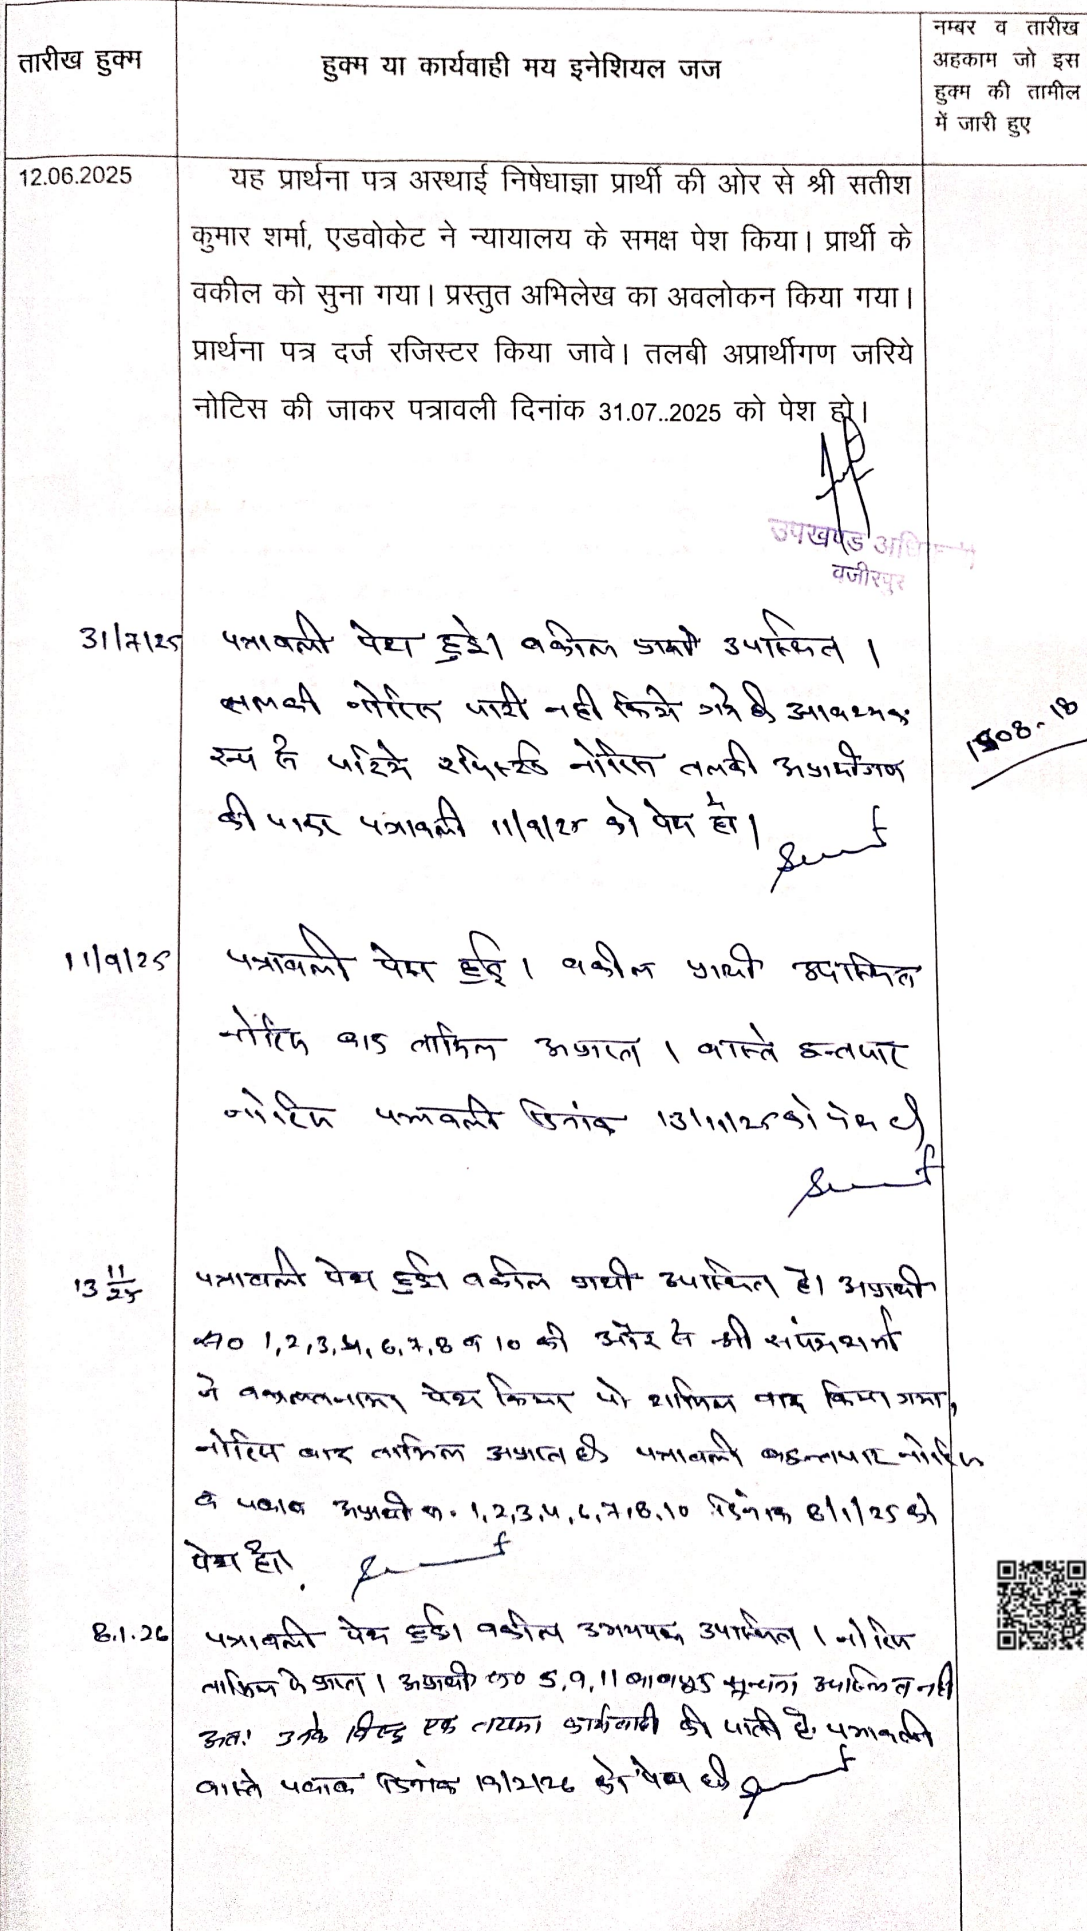 तारीख हुक्म
हुक्म या कार्यवाही मय इनेशियल जज
नम्बर व तारीख
अहकाम जो इस
हुक्म की तामील
में जारी हुए
12.06.2025
यह प्रार्थना पत्र अस्थाई निषेधाज्ञा प्रार्थी की ओर से श्री सतीश
कुमार शर्मा, एडवोकेट ने न्यायालय के समक्ष पेश किया। प्रार्थी के
वकील को सुना गया। प्रस्तुत अभिलेख का अवलोकन किया गया।
प्रार्थना पत्र दर्ज रजिस्टर किया जावे। तलबी अप्रार्थीगण जरिये
नोटिस की जाकर पत्रावली दिनांक 31.07..2025 को पेश हो।
उपखण्ड
वजीरपुर
31/7/25 पत्रावली पेश हुई। वकील प्रार्थी उपस्थित।
तलबी नोटिस जारी नही किये गये है आवश्यक
रूप से जरिये रजिस्टर्ड नोटिस तलबी अप्रार्थीगण
की जाकर पत्रावली 11/9/25 को पेश हो।
11/9/25 पत्रावली पेश हुई। वकील प्रार्थी उपस्थित
नोटिस बाद तामिल अप्राप्त। वास्ते इन्तजार
नोटिस पत्रावली दिनांक 13/11/25 को पेश हो
13 11/25 पत्रावली पेश हुई। वकील प्रार्थी उपस्थित है। अप्रार्थी
स0 1,2,3,4,6,7,8 व 10 की ओर से श्री शर्मा
ने वकालतनामा पेश किया जो शामिल वाद किया गया,
नोटिस बाद तामिल अप्राप्त है पत्रावली इन्तजार नोटिस
व जवाब अप्रार्थी स. 1,2,3,4,6,7,8,10 दिनांक 8/1/25 को
पेश हो।
8.1.26 पत्रावली पेश हुई। वकील उभयपक्ष उपस्थित। नोटिस
तामिल प्राप्त। अप्रार्थी स0 5,9,11 बावजूद सूचना उपस्थित नही
अतः उनके विरुद्ध एक तरफा कार्यवाही की जाती है। पत्रावली
वास्ते जवाब दिनांक 19/2/26 को पेश हो